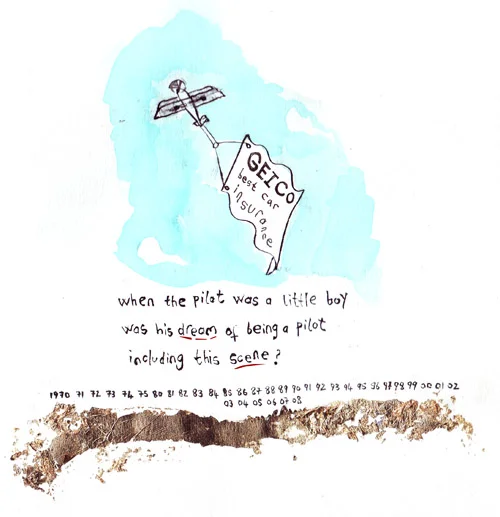 GEICO
best car
insurance
when the pilot was a little boy
was his dream of being a pilot
including this scene?
1970 71 72 73 74 75 80 81 82 83 84 85 86 87 88 89 90 91 92 93 94 95 96 98 98 99 00 01 02
03 04 05 06 07 08